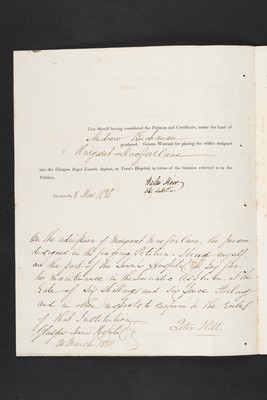 THE Sheriff having considered the Petition and Certificate, under the hand of
Andrew Buchanan
produced. Grants Warrant for placing the within designed
Margaret Macfarlane
into the Glasgow Royal Lunatic Asylum, or Town's Hospital, in terms of the Statute referred to in the
Petition.
GLASGOW, 8 Mar 1838
On the admission of Margaret Macfarlane, the person
designed in the foregoing Petition, I bind myself,
on the part of the Town's Hospital, to pay for
her maintenance in the Lunatic Asylum at the
Rate of Six Shillings and Six pence Sterling
and in other respects to conform to the Rules
of that Institution
Peter Hill
Glasgow Town's Hospital
March 1838